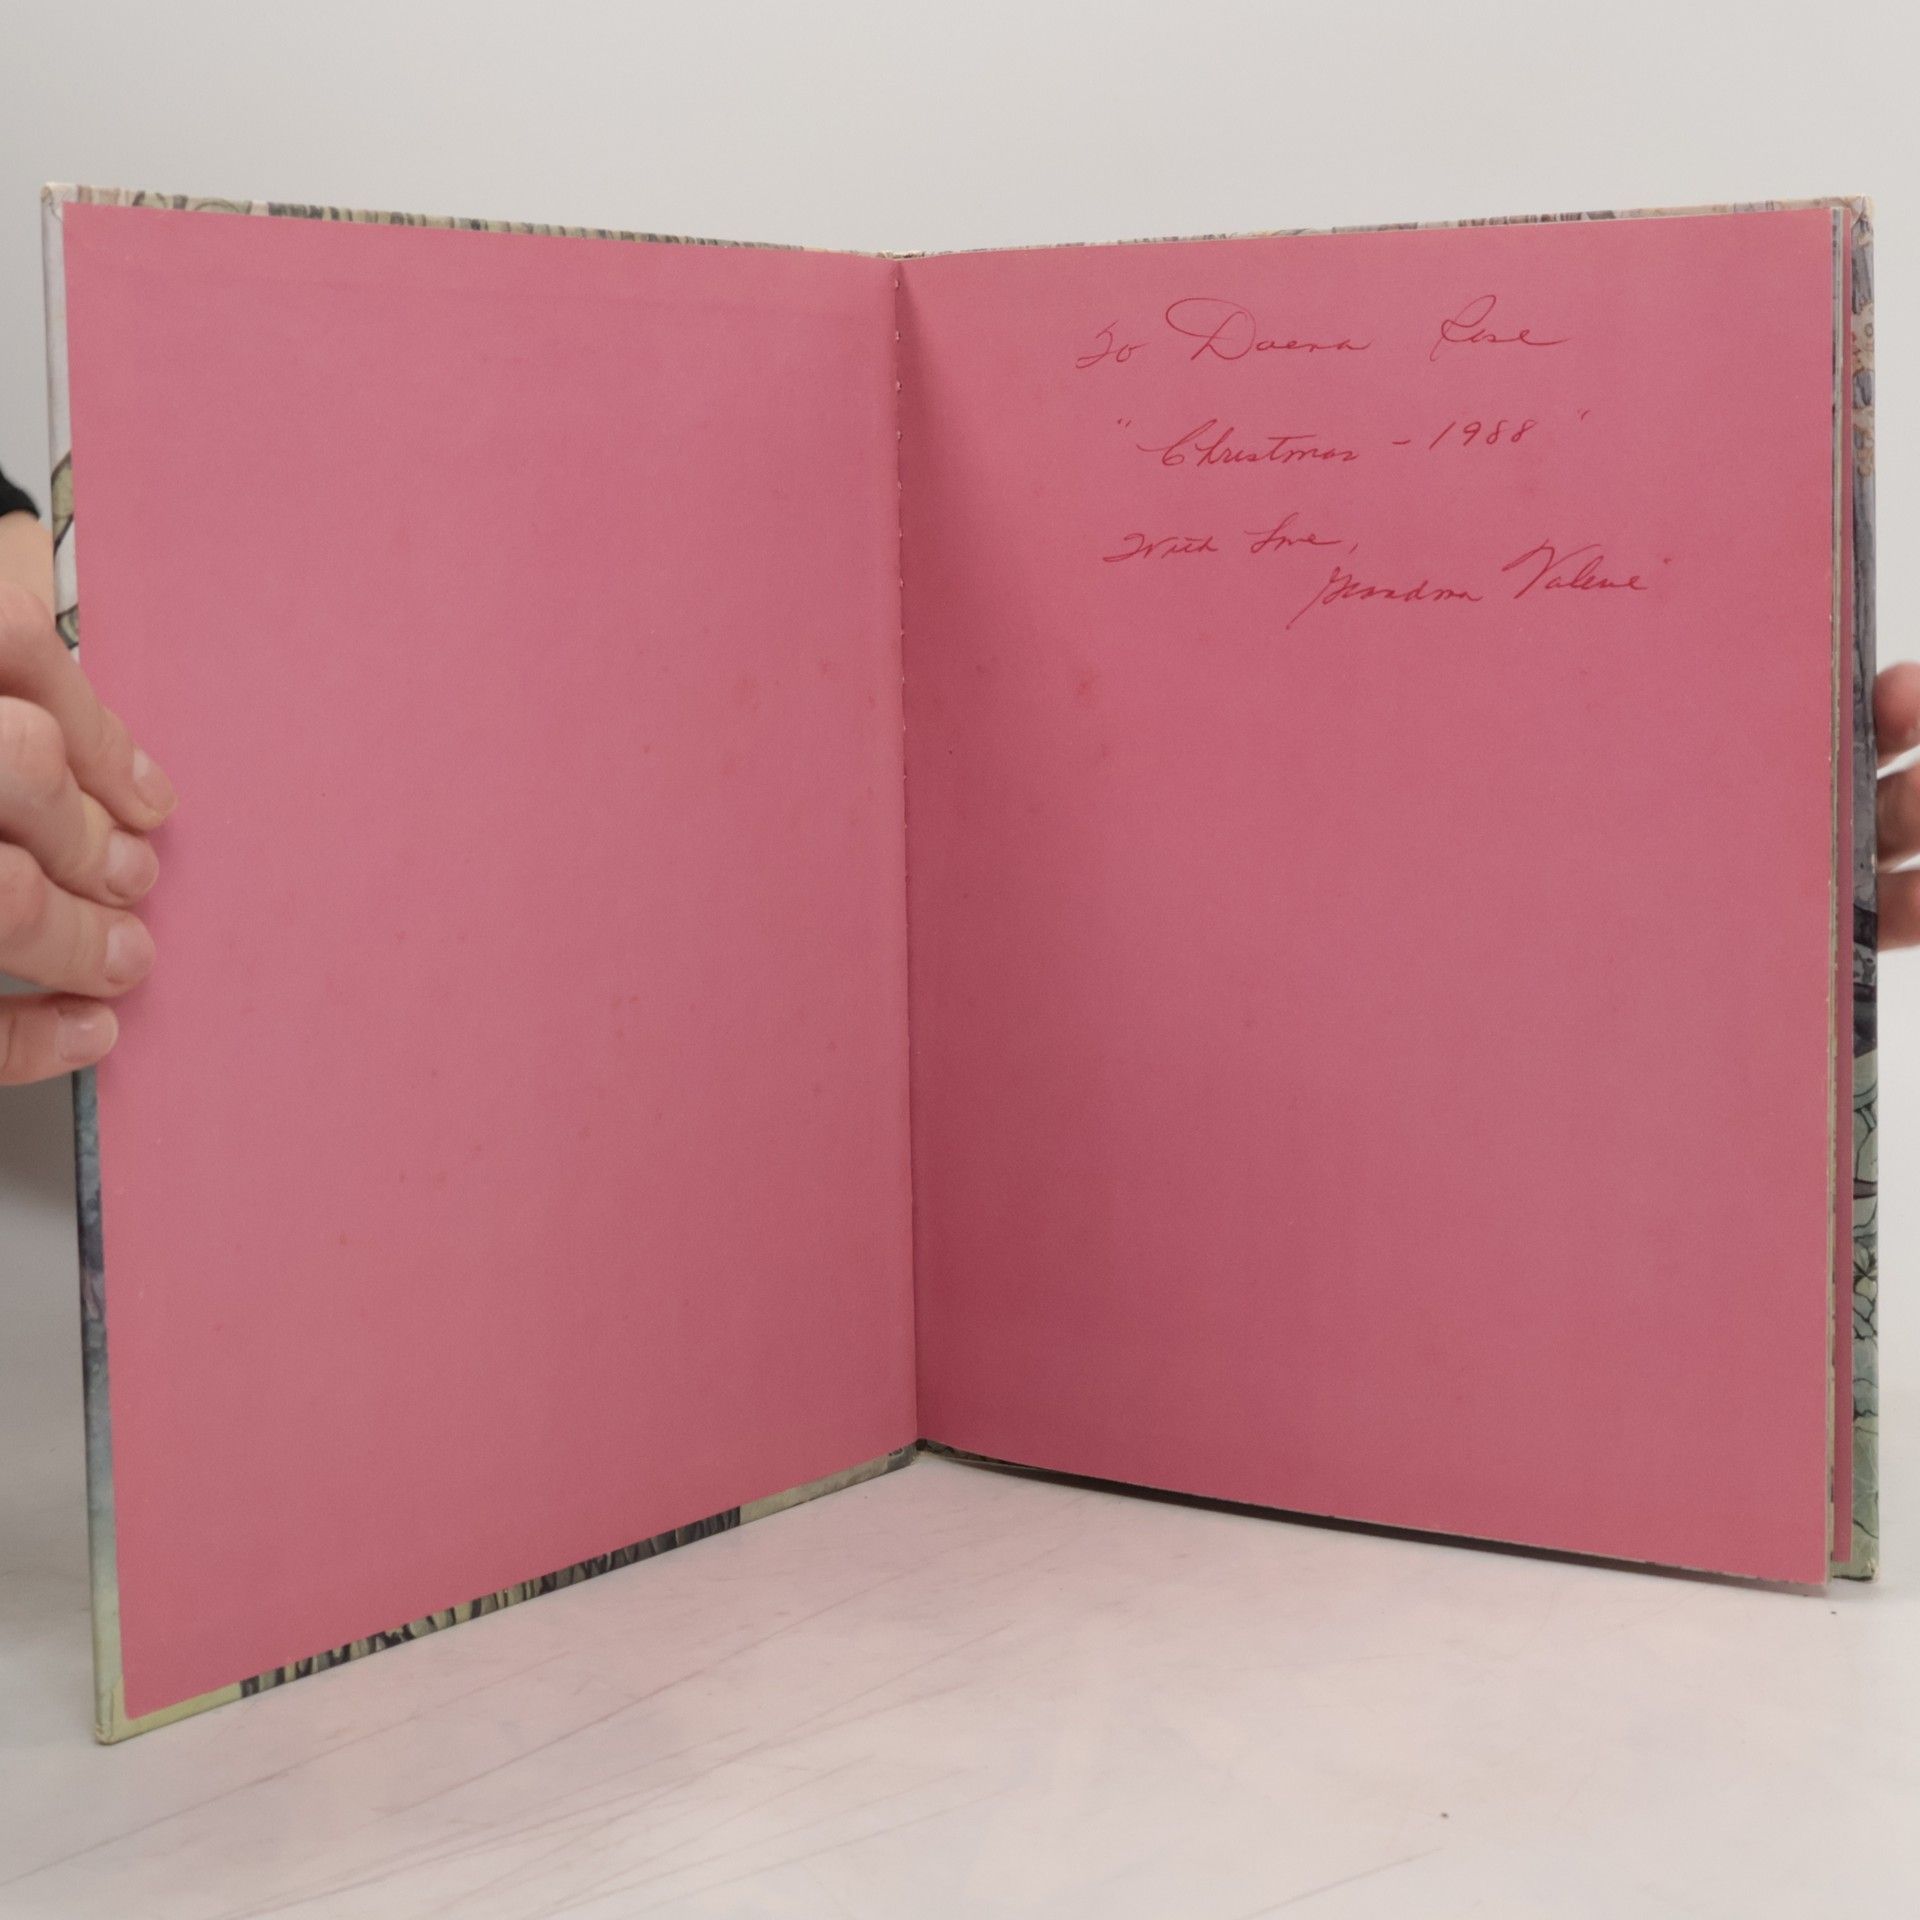 To Daena Rose
"Christmas - 1988"
With Love,
Grandma Valerie"